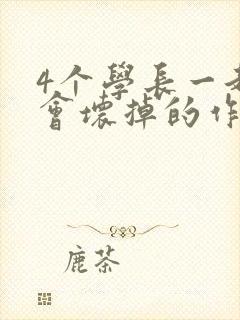 4个學長一
會壞掉的作
鹿茶